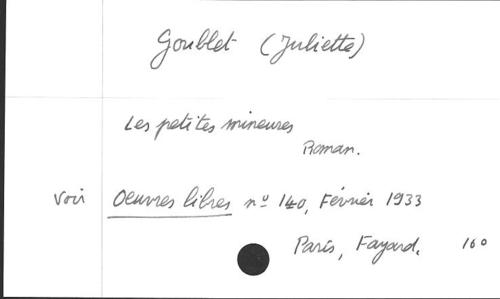 Goublet (Juliette)
Les petites mineures
Roman.
Voir Oeuvres libres nº 140, Février 1933
Paris, Fayard. 160